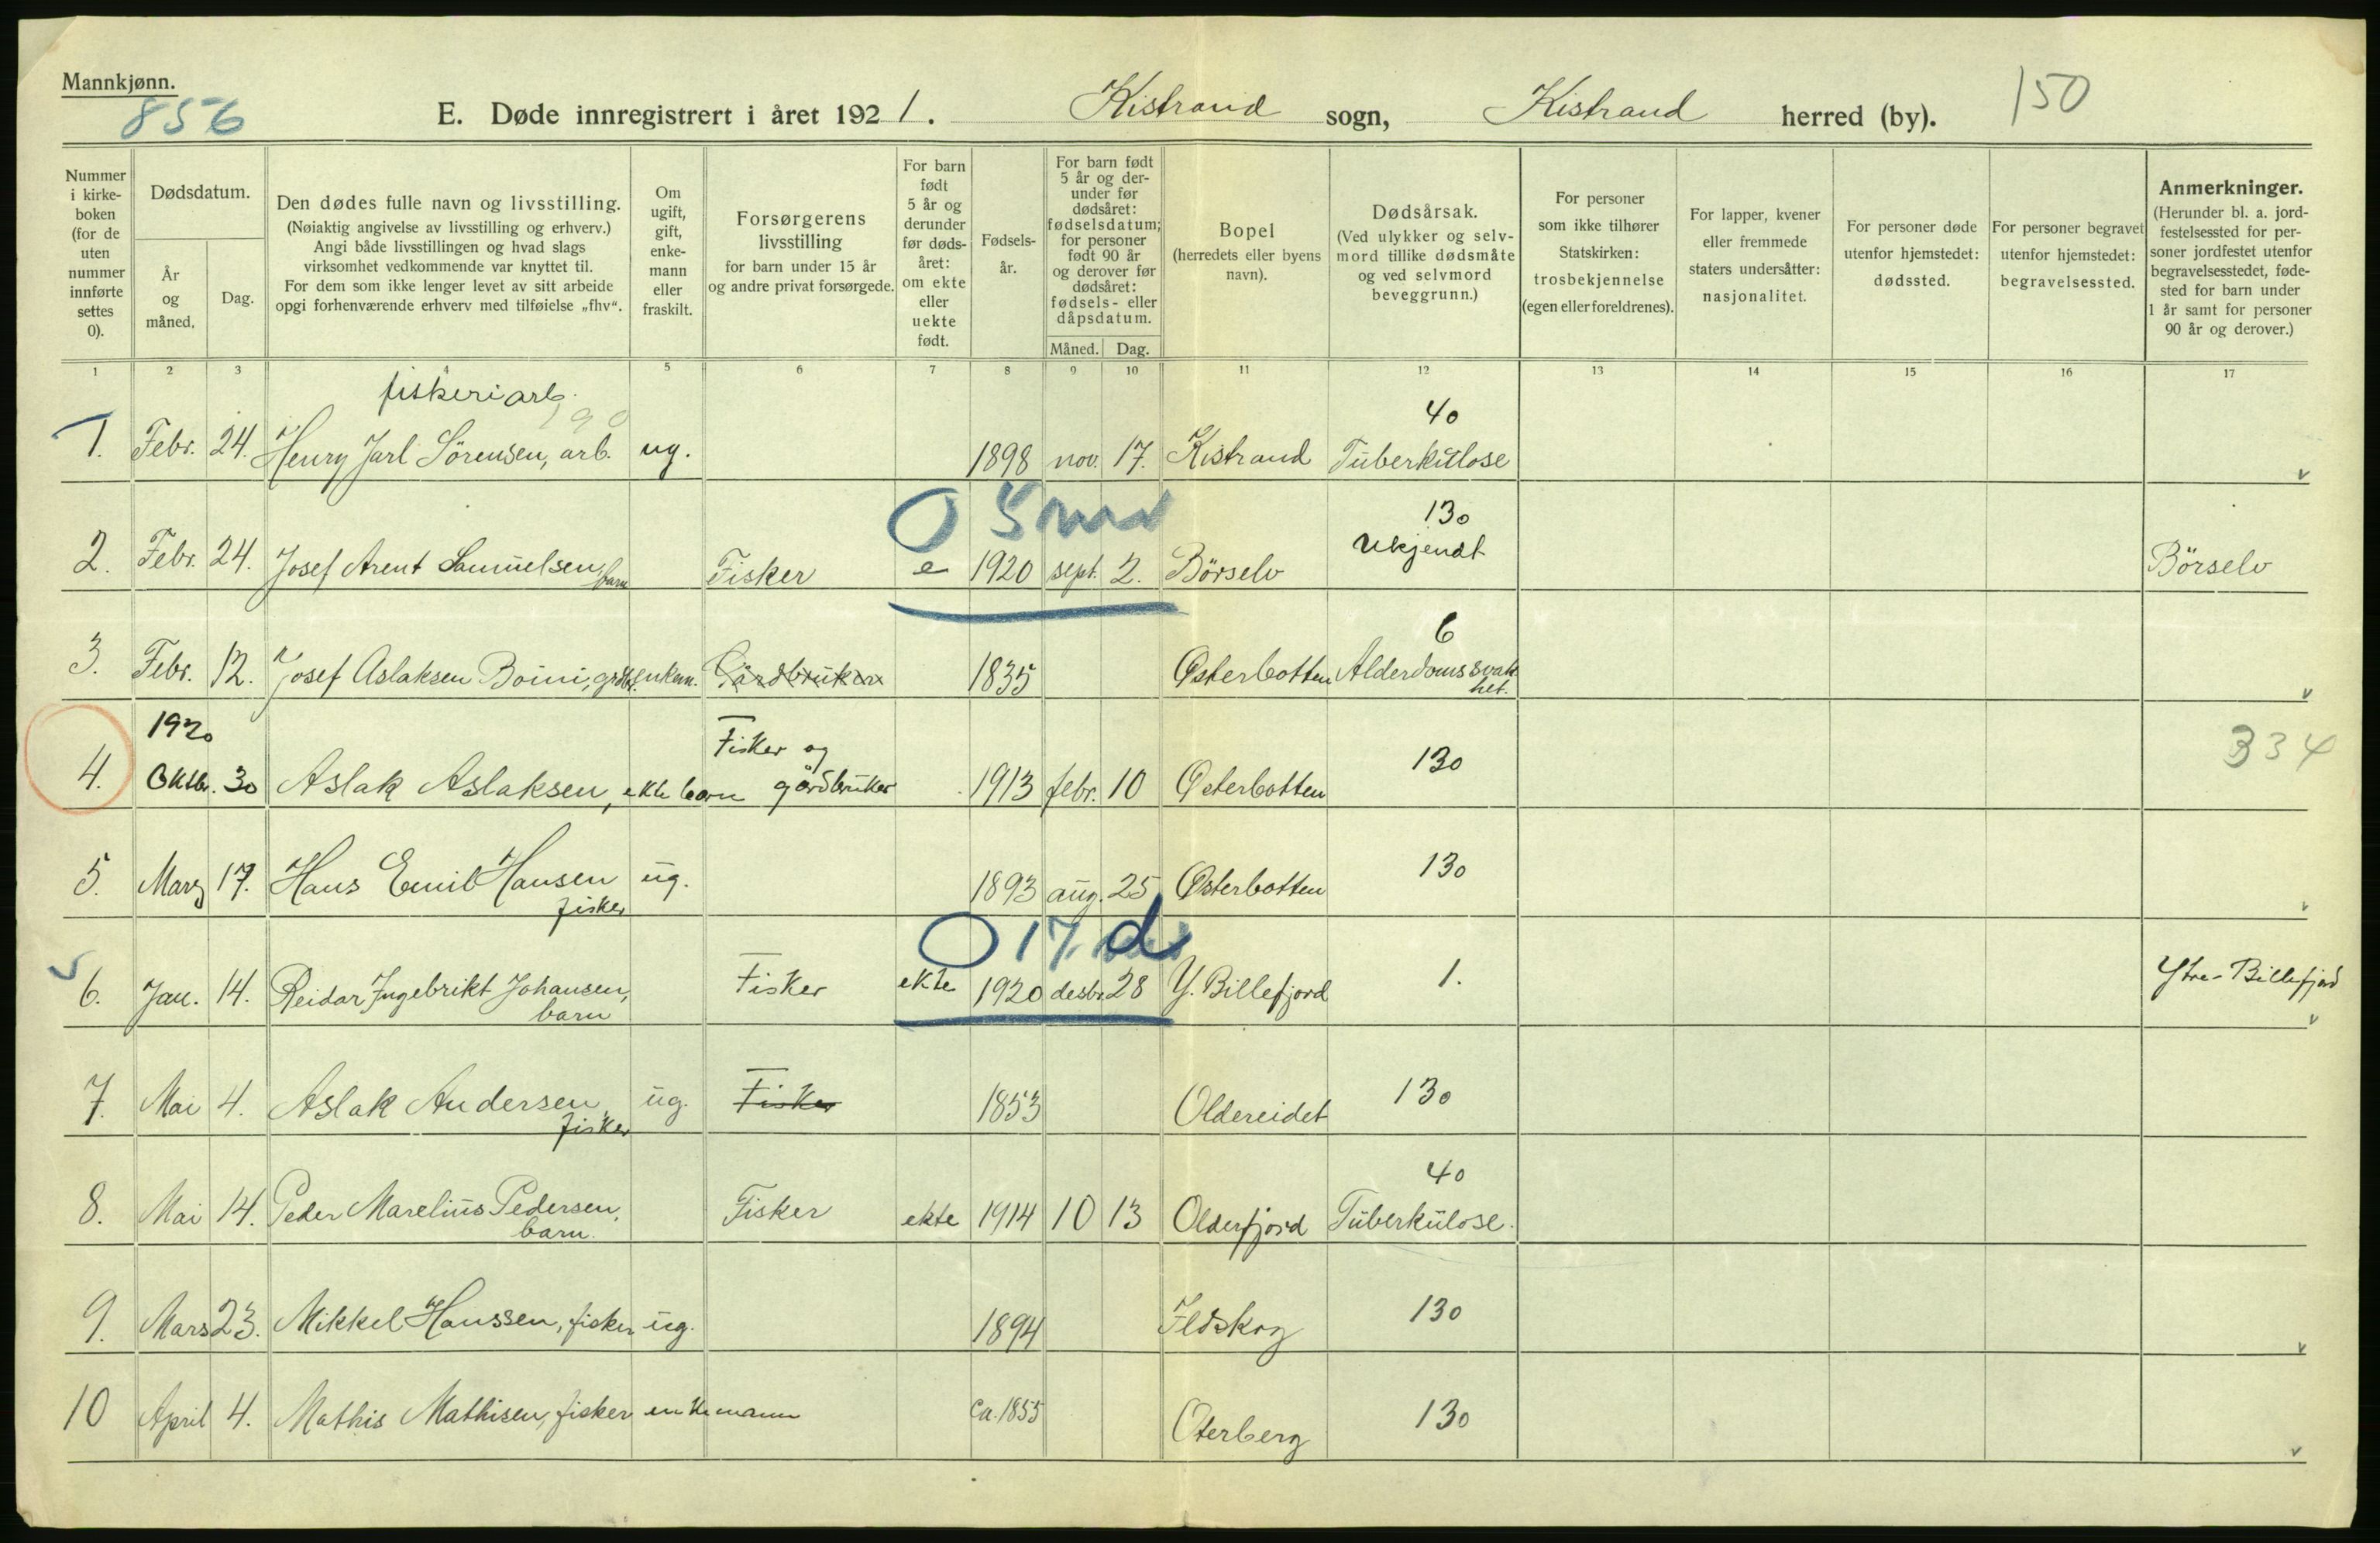 Mannkjønn.
856
E. Døde innregistrert i året 1921. Kistrand sogn, Kistrand herred (by). 150
Nummer i kirkeboken (for de uten nummer innførte settes 0).
Dødsdatum.
År og måned.
Dag.
Den dødes fulle navn og livsstilling.
(Nøiaktig angivelse av livsstilling og erhverv.)
Angi både livsstillingen og hvad slags
virksomhet vedkommende var knyttet til.
For dem som ikke lenger levet av sitt arbeide
opgi forhenværende erhverv med tilføielse „fhv“.
Om ugift, gift, enkemann eller fraskilt.
Forsørgerens livsstilling
for barn under 15 år
og andre privat forsørgede.
For barn født 5 år og derunder før dødsåret: om ekte eller uekte født.
Fødselsår.
For barn født 5 år og derunder før dødsåret: fødselsdatum; for personer født 90 år og derover før dødsåret: fødsels- eller dåpsdatum.
Måned. Dag.
Bopel
(herredets eller byens navn).
Dødsårsak.
(Ved ulykker og selvmord tillike dødsmåte og ved selvmord beveggrunn.)
For personer som ikke tilhører Statskirken: trosbekjennelse (egen eller foreldrenes).
For lapper, kvener eller fremmede staters undersåtter: nasjonalitet.
For personer døde utenfor hjemstedet: dødssted.
For personer begravet utenfor hjemstedet: begravelsessted.
Anmerkninger.
(Herunder bl. a. jordfestelsessted for personer jordfestet utenfor begravelsesstedet, fødested for barn under 1 år samt for personer 90 år og derover.)
1 2 3 4 5 6 7 8 9 10 11 12 13 14 15 16 17
fiskeriarb. 40
1. Febr. 24. Henry Jarl Sörensen, arb. ug. 1898 nov. 17. Kistrand Tuberkulose
0 5 mnd 130
2. Febr. 24. Josef Arent Samuelsen, barn Fisker e 1920 sept. 2. Börselv Ukjendt Börselv
6
3. Febr. 12. Josef Aslaksen Boini, grdbr. enkem. Gårdbruker 1835 Østerbotten Alderdomssvakhet.
1920 Fisker og 334
4. Oktbr. 30 Aslak Aslaksen, ekte barn gårdbruker 1913 febr. 10 Østerbotten 130
5. Marz 17. Hans Emil Hansen fisker ug. 1893 aug. 25 Østerbotten 130
0 17 d
6. Jan. 14. Reidar Ingebrikt Johansen, barn Fisker ekte 1920 desbr. 28 Y. Billefjord 1. Ytre-Billefjord
7. Mai 4. Aslak Andersen fisker ug. Fisker 1853 Oldereidet 130
40
8. Mai 14. Peder Marelius Pedersen, barn. Fisker ekte 1914 10 13 Olderfjord Tuberkulose.
9. Mars 23. Mikkel Hanssen, fisker ug. 1894 Ildskog 130
10 April 4. Mathis Mathisen, fisker enkemann ca. 1855 Oterberg 130